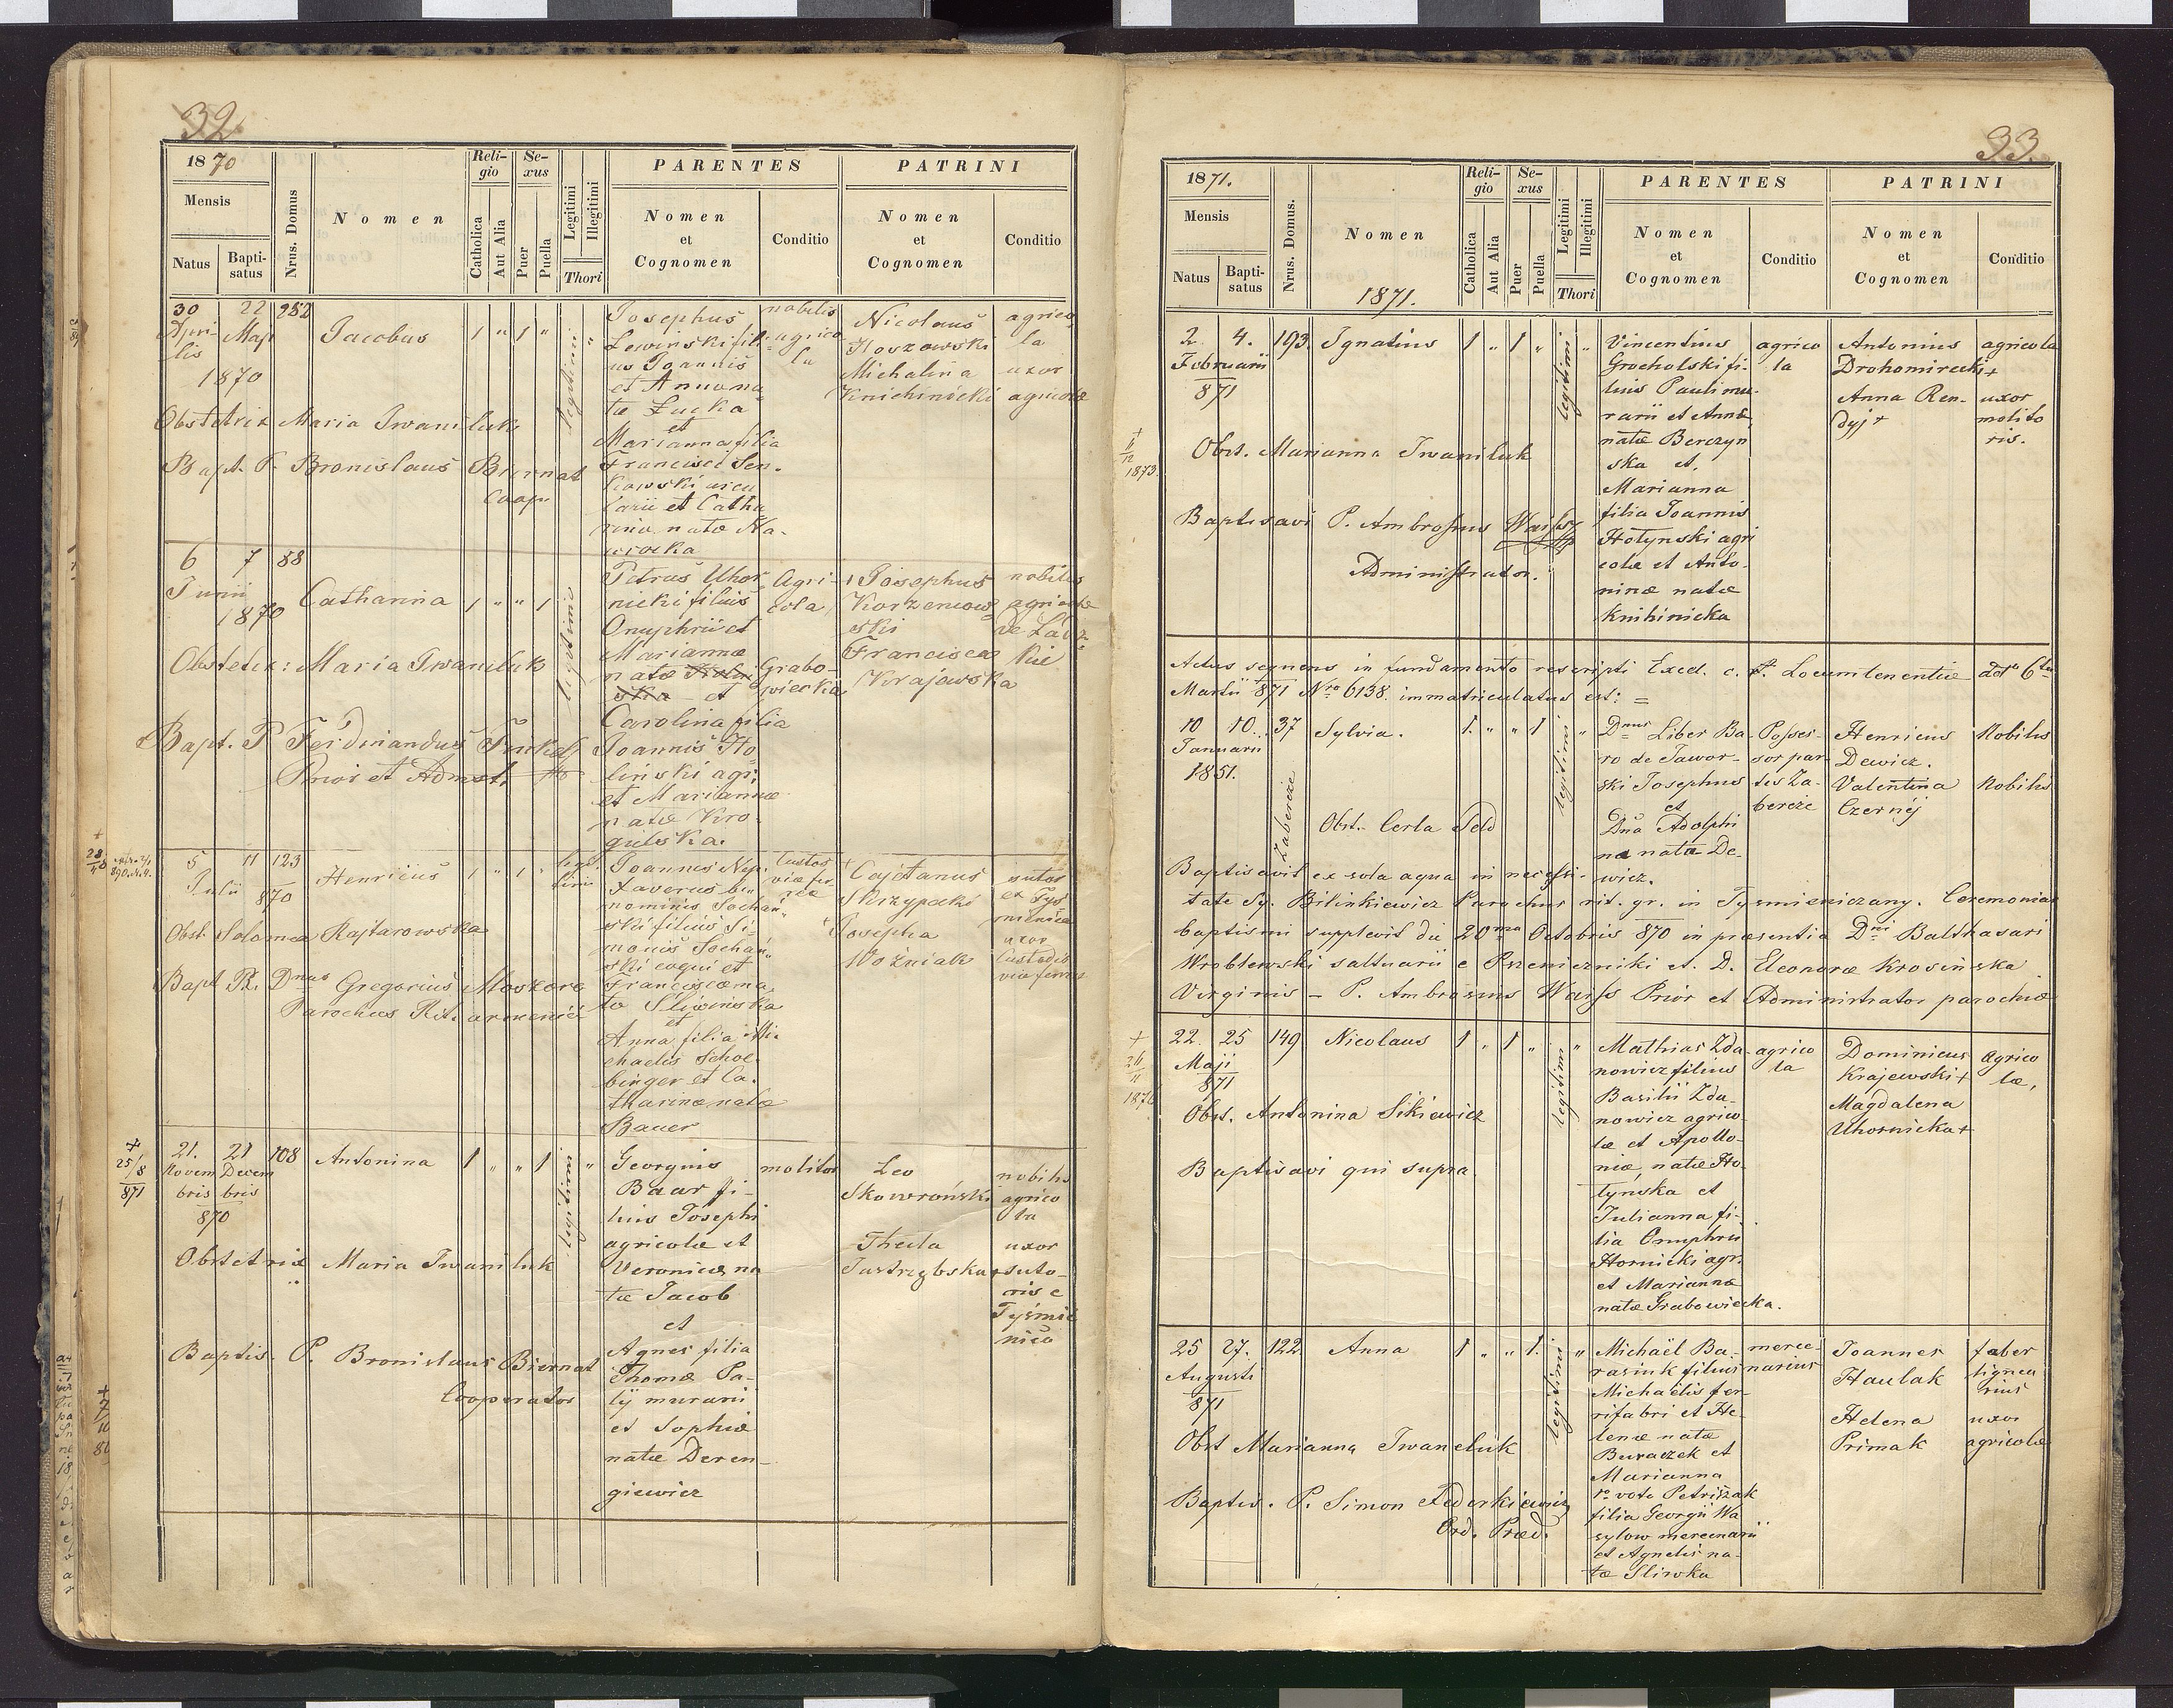 32
1870
Mensis
Natus
Bapti-
satus
Nrus. Domus
Nomen
Reli-
gio
Catholica
Aut Alia
Se-
xus
Puer
Puella
Legitimi
Illegitimi
Thori
PARENTES
Nomen
et
Cognomen
Conditio
PATRINI
Nomen
et
Cognomen
Conditio
30 22 252
Apri- Maji
lis
1870
Jacobus
1 " 1 "
legitimi
Josephus
Lewinski fili
us Joannis
et Anna na
tæ Łucka
et
Marianna filia
Francisci Sen-
kowski
larii et Catha
rina natæ Na-
wrocka
nobilis
agrico
la
Nicolaus
Koszowski
Michalina
Knichinicki
agrico
la
uxor
agricolæ
Obstetrix Maria Iwaniluk
Bapt. P. Bronislaus Biernat
Coop.
6 7 88
Junii
1870
Catharina
1 " " 1
legitimi
Petrus Uhor
nicki filius
Onuphrii et
Mariannæ
natæ
et
Grabo-
wiecka
Carolina filia
Joannis Ho
linski agr.
et Mariannæ
natæ Kro-
gulska.
Agri-
cola
Josephus
Korzeniow
ski
Francisca
Krajewska
nobilis
agricolæ
Obstetrix: Maria Iwaniluk
Bapt. P. Ferdinandus
Prior et Admstr.
5 11 123
Julii 870
Henricus
1 " 1 "
legi
timi
Joannes Nep.
Xaverus bi-
nominis Sochań
ski filius Si-
monis Sochań
ski coqui et
Francisca na
ta Śliwińska
et
Anna filia Mi-
chaelis Schol-
binger et Ca-
tharinæ natæ
Bauer
Custos
viæ fer
reæ
Cajetanus
Skrzypecki
Josepha
Woźniak
sutor
ex Tys
mienica
uxor
Custodis
viæ ferreæ
Obst. Salomea Rajtarowska
Bapt. R. Dnus Gregorius Moskoro
Parochus Rit. armenici
+
25/8
871
21. 21 108
Novem Decem
bris bris
870
Antonina
1 " " 1
legitimi
"
Georgius
Baar fi-
lius Josephi
agricolæ et
Veronicæ na
tæ Jacob
et
Agnes filia
Thomæ Pa-
lij murarii
et Sophiæ
natæ Deren-
giewicz
molitor
Leo
Skowroński
Thecla
Jastrzybska +
nobilis
agrico
la
uxor
suto-
ris e
Tyśmie
nica
Obstetrix Maria Iwaniluk
Baptis. P. Bronislaus Biernat
Cooperator
33.
1871.
Mensis
Natus
Bapti-
satus
Nrus. Domus.
Nomen
1871.
Reli-
gio
Catholica
Aut Alia
Se-
xus
Puer
Puella
Legitimi
Illegitimi
Thori
PARENTES
Nomen
et
Cognomen
Conditio
PATRINI
Nomen
et
Cognomen
Conditio
2. 4. 193
Februarii
871
Ignatius
1 " 1 "
legitimi
"
Vincentius
Grocholski fi-
lius Pauli mu-
rarii et Annæ
natæ Berezyn
ska et
Marianna
filia Joannis
Hotynski agri
colæ et Anto-
ninæ natæ
Knihinicka
agrico
la
Antonius
Drohomirecki +
Anna Ren-
dyj +
agricola
uxor
molito
ris.
1873.
Obst. Marianna Iwaniluk
Baptisavi P. Ambrosius Waiss
Administrator.
Actus sequens in fundamento rescripti Excel. c. r. Locumtenentiæ ddto 6ta
Martii 871 Nro 6138. immatriculatus est: =
10 10. 37
Januarii
1851.
Zabereze
Sylvia.
1. " " 1
legitimi
"
Dnus Liber Ba-
ro de Jawor-
ski Josephus
et
Dna Adolphi
na nata De-
wicz.
Posses-
sor par
tis Za-
bereze
Henricus
Dewicz.
Valentina
Czernÿ
Nobilis
Nobilis
Obst. Cerla Feld
Baptisavit ex sola aqua in necessi-
tate Sy. Bilinkiewicz Parochus rit. gr. in Tysmieniczany. Ceremonias
baptismi supplevit die 20ma Octobris 870 in præsentia Dni Balthasari
Wroblewski saltuarii e Pszeniczniki et D. Eleonoræ Krosińska
Virginis – P. Ambrosius Waiss Prior et Administrator parochiæ
+
26
11
1876
22. 25 149
Maji
871
Nicolaus
1 " 1 "
legitimi
"
Mathias Zda-
nowicz filius
Basilii Zda-
nowicz agrico
læ et Apollo-
niæ natæ Ho-
tynska et
Julianna fi-
lia Onuphrii
Hornicki agr.
et Marianna
natæ Grabowiecka.
agrico
la
Dominicus
Krajewski +
Magdalena
Uhornicka +
agrico
læ,
Obst. Antonina Sikiewicz
Baptisavi qui supra.
25 27. 122
Augusti
871
Anna
1 " " 1.
legitimi
"
Michaël Ba-
rasiuk filius
Michaëlis fer-
rifabri et He-
lenæ natæ
Buraczek et
Marianna
1o voto Petriszak
filia Georgii Wa
sylow mercenarii
et Agnetis na-
tæ Sliwka
merce
narius
Joannes
Haulak
Helena
Primak
faber
lignea
rius
uxor
agricolæ
Obst Marianna Iwaneluk
Baptis. P. Simon Federkiewicz
Ord. Præd.